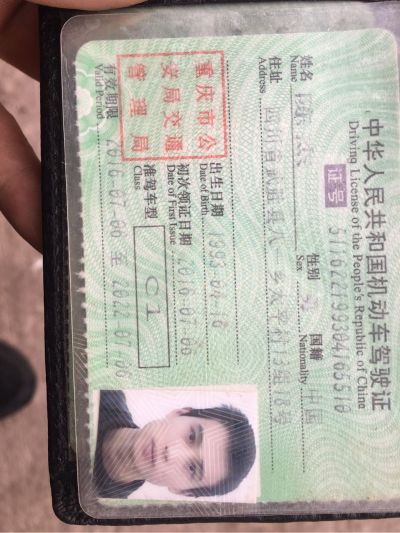 中华人民共和国机动车驾驶证
Driving License of the People's Republic of China
证号 511622199304165510
姓名
Name
性别
Sex
国籍 中国
Nationality
住址 四川省武胜县八一乡 村13组18号
Address
重庆市公
安局交通
管理局
出生日期 1993-04-16
Date of Birth
初次领证日期 2016-07-06
Date of First Issue
准驾车型 C1
Class
有效期限 2016-07-06 至 2022-07-06
Valid Period